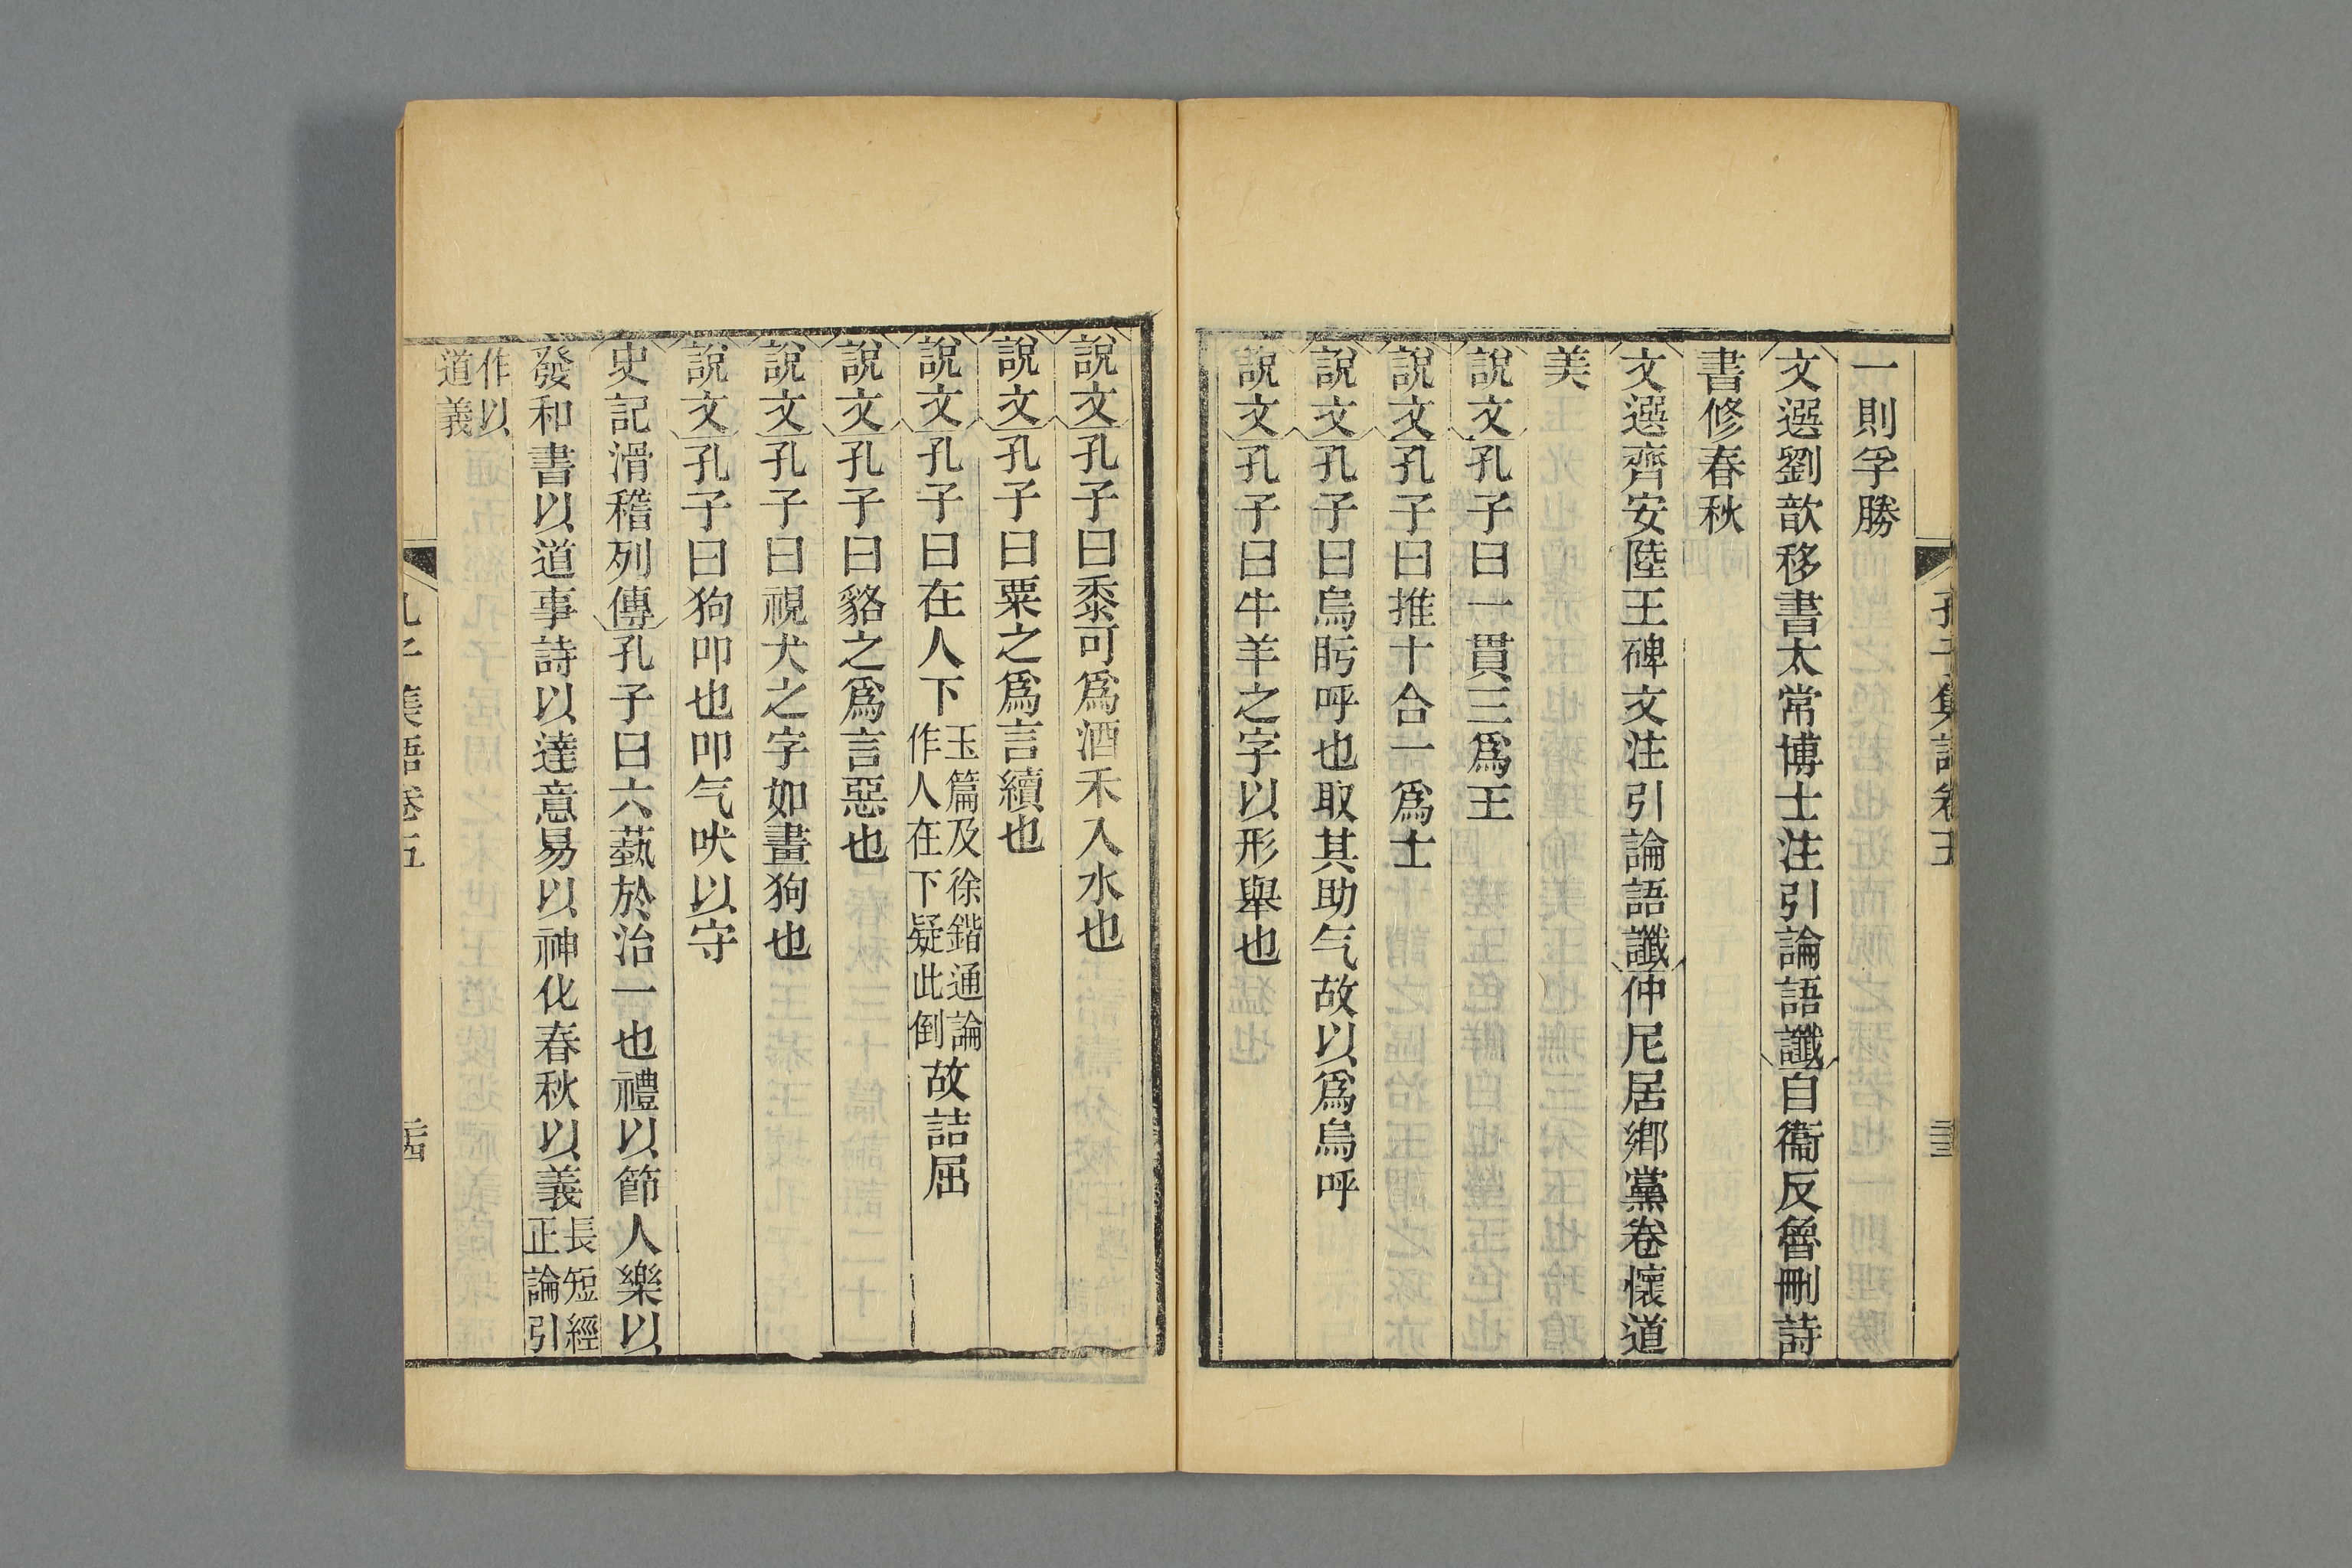 一則孚勝
文選劉歆移書太常博士注引論語讖自衞反魯刪詩
書修春秋
文選齊安陸王碑文注引論語讖仲尼居鄉黨卷懷道
美
說文孔子曰一貫三爲王
說文孔子曰推十合一爲士
說文孔子曰烏盱呼也取其助气故以爲烏呼
說文孔子曰牛羊之字以形舉也
說文孔子曰黍可爲酒禾入水也
說文孔子曰粟之爲言續也
說文孔子曰在人下玉篇及徐鍇通論作人在下疑此倒故詰屈
說文孔子曰貉之爲言惡也
說文孔子曰視犬之字如畫狗也
說文孔子曰狗叩也叩气吠以守
史記滑稽列傳孔子曰六蓺於治一也禮以節人樂以
發和書以道事詩以達意易以神化春秋以義長短經正論引
作以道義
孔子集語卷五